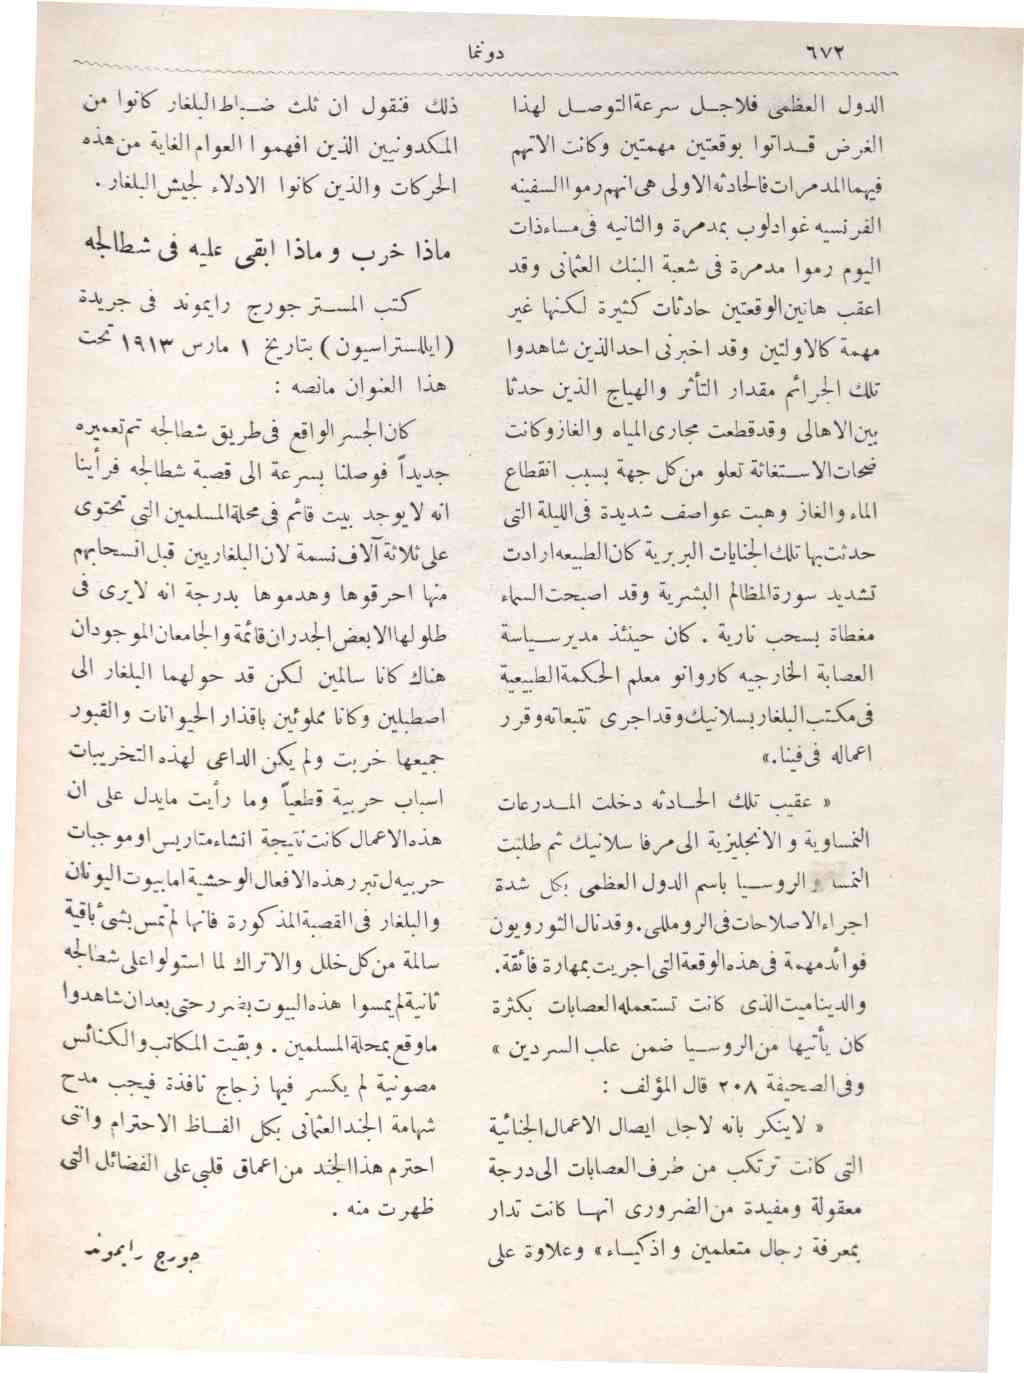 ٦٧٢
دونما
الدول العظمى فلاجل سرعةالتوصل لهذا
الغرض قداتوا بوقعتين مهمتين وكانت الاتهم
فيهماالمدمرات فالحادثهالاولى هى انهم رمواالسفينه
الفرنسيه غوادلوب بمدمرة والثانيه فى مساءذات
اليوم رموا مدمرة فى شعبة البنك العثمانى وقد
اعقب هاتين الوقعتين حادثات كثيرة لكنها غير
مهمة كالاولتين وقد اخبرنى احدالذين شاهدوا
تلك الجرائم مقدار التأثر والهياج الذين حدثا
بين الاهالى وقدقطعت مجارى المياه والغازوكانت
ضجات الاستغاثة تعلو من كل جهة بسبب انقطاع
الماء والغاز وهبت عواصف شديدة فى الليلة التى
حدثت بها تلك الجنايات البربرية كان الطبيعه ارادت
تشديد سورة المظالم البشرية وقد اصبحت السماء
مغطاة بسحب نارية . كان حينئذ مدير سياسة
العصابة الخارجيه كاروانو معلم الحكمة الطبيعية
فى مكتب البلغار بسلانيك وقداجرى تتبعاته وقرر
اعماله فى فينا.»
« عقيب تلك الحادثه دخلت المدرعات
النمساوية و الانجليزية الى مرفا سلانيك ثم طلبت
النمسا والروسيا باسم الدول العظمى بكل شدة
اجراءالاصلاحات فى الروملى.وقدنال الثورويون
فوائدمهمة فى هذه الوقعة التى اجريت بمهارة فائقة.
والديناميت الذى كانت تستعمله العصابات بكثرة
كان يأتيها من الروسيا ضمن علب السردين »
وفى الصحيفة ٢٠٨ قال المؤلف :
« لاينكر بانه لاجل ايصال الاعمال الجنائية
التى كانت ترتكب من طرف العصابات الى درجة
معقولة ومفيدة من الضرورى انها كانت تدار
بمعرفة رجال متعلمين و اذكياء» وعلاوة على
ذلك فنقول ان ثلث ضباط البلغار كانوا من
المكدونيين الذين افهموا العوام الغاية من هذه
الحركات والذين كانوا الادلاء لجيش البلغار .
ماذا خرب و ماذا ابقى عليه فى شطالجه
كتب المستر جورج رايموند فى جريدة
(ايللستراسيون) بتاريخ ١ مارس ١٩١٣ تحت
هذا العنوان مانصه :
كان الجسر الواقع فى طريق شطالجه تم تعميره
جديداً فوصلنا بسرعة الى قصبة شطالجه فرأينا
انه لايوجد بيت قائم فى محلة المسلمين التى تحتوى
على ثلاثة آلاف نسمة لان البلغاريين قبل انسحابهم
منها احرقوها وهدموها بدرجة انه لايرى فى
طلولها الابعض الجدران قائمة والجامعان الموجودان
هناك كانا سالمين لكن قد حولهما البلغار الى
اصطبلين وكانا مملوئين باقذار الحيوانات والقبور
جميعها خربت ولم يكن الداعى لهذه التخريبات
اسباب حربية قطعياً وما رأيت مايدل على ان
هذه الاعمال كانت نتيجة انشاء متاريس اوموجبات
حربيه ل تبرر هذه الافعال الوحشية اما بيوت اليونان
والبلغار فى القصبة المذكورة فانها لم تمس بشئ باقية
سالمة من كل خلل والاتراك لما استولوا على شطالجه
ثانية لم يمسوا هذه البيوت بضرر حتى بعدان شاهدوا
ماوقع بمحلة المسلمين . وبقيت المكاتب والكنائس
مصونية لم يكسر فيها زجاج نافذة فيجب مدح
شهامة الجند العثمانى بكل الفاظ الاحترام وانتى
احترم هذا الجند من اعماق قلبى على الفضائل التى
ظهرت منه .
جورج رايموند